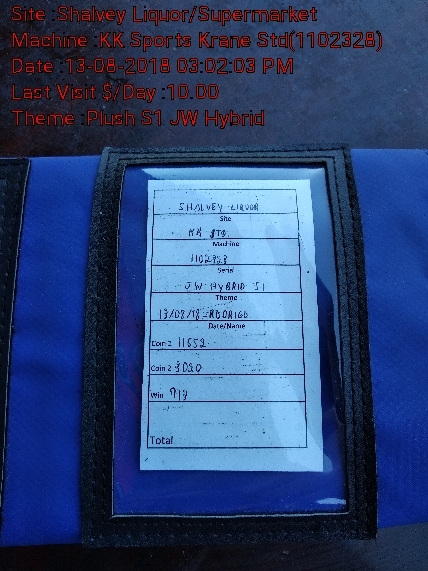 Site :Shalvey Liquor/Supermarket
Machine :KK Sports Krane Std(1102328)
Date :13-08-2018 03:02:03 PM
Last Visit $/Day :10.00
Theme :Plush S1 JW Hybrid
SHALVEY LIQUOR
Site
KK STD.
Machine
1102328
Serial
JW HYBRID S1
Theme
13/08/18-RODRIGO
Date/Name
Coin 1 11552
Coin 2 3020
Win 717
Total